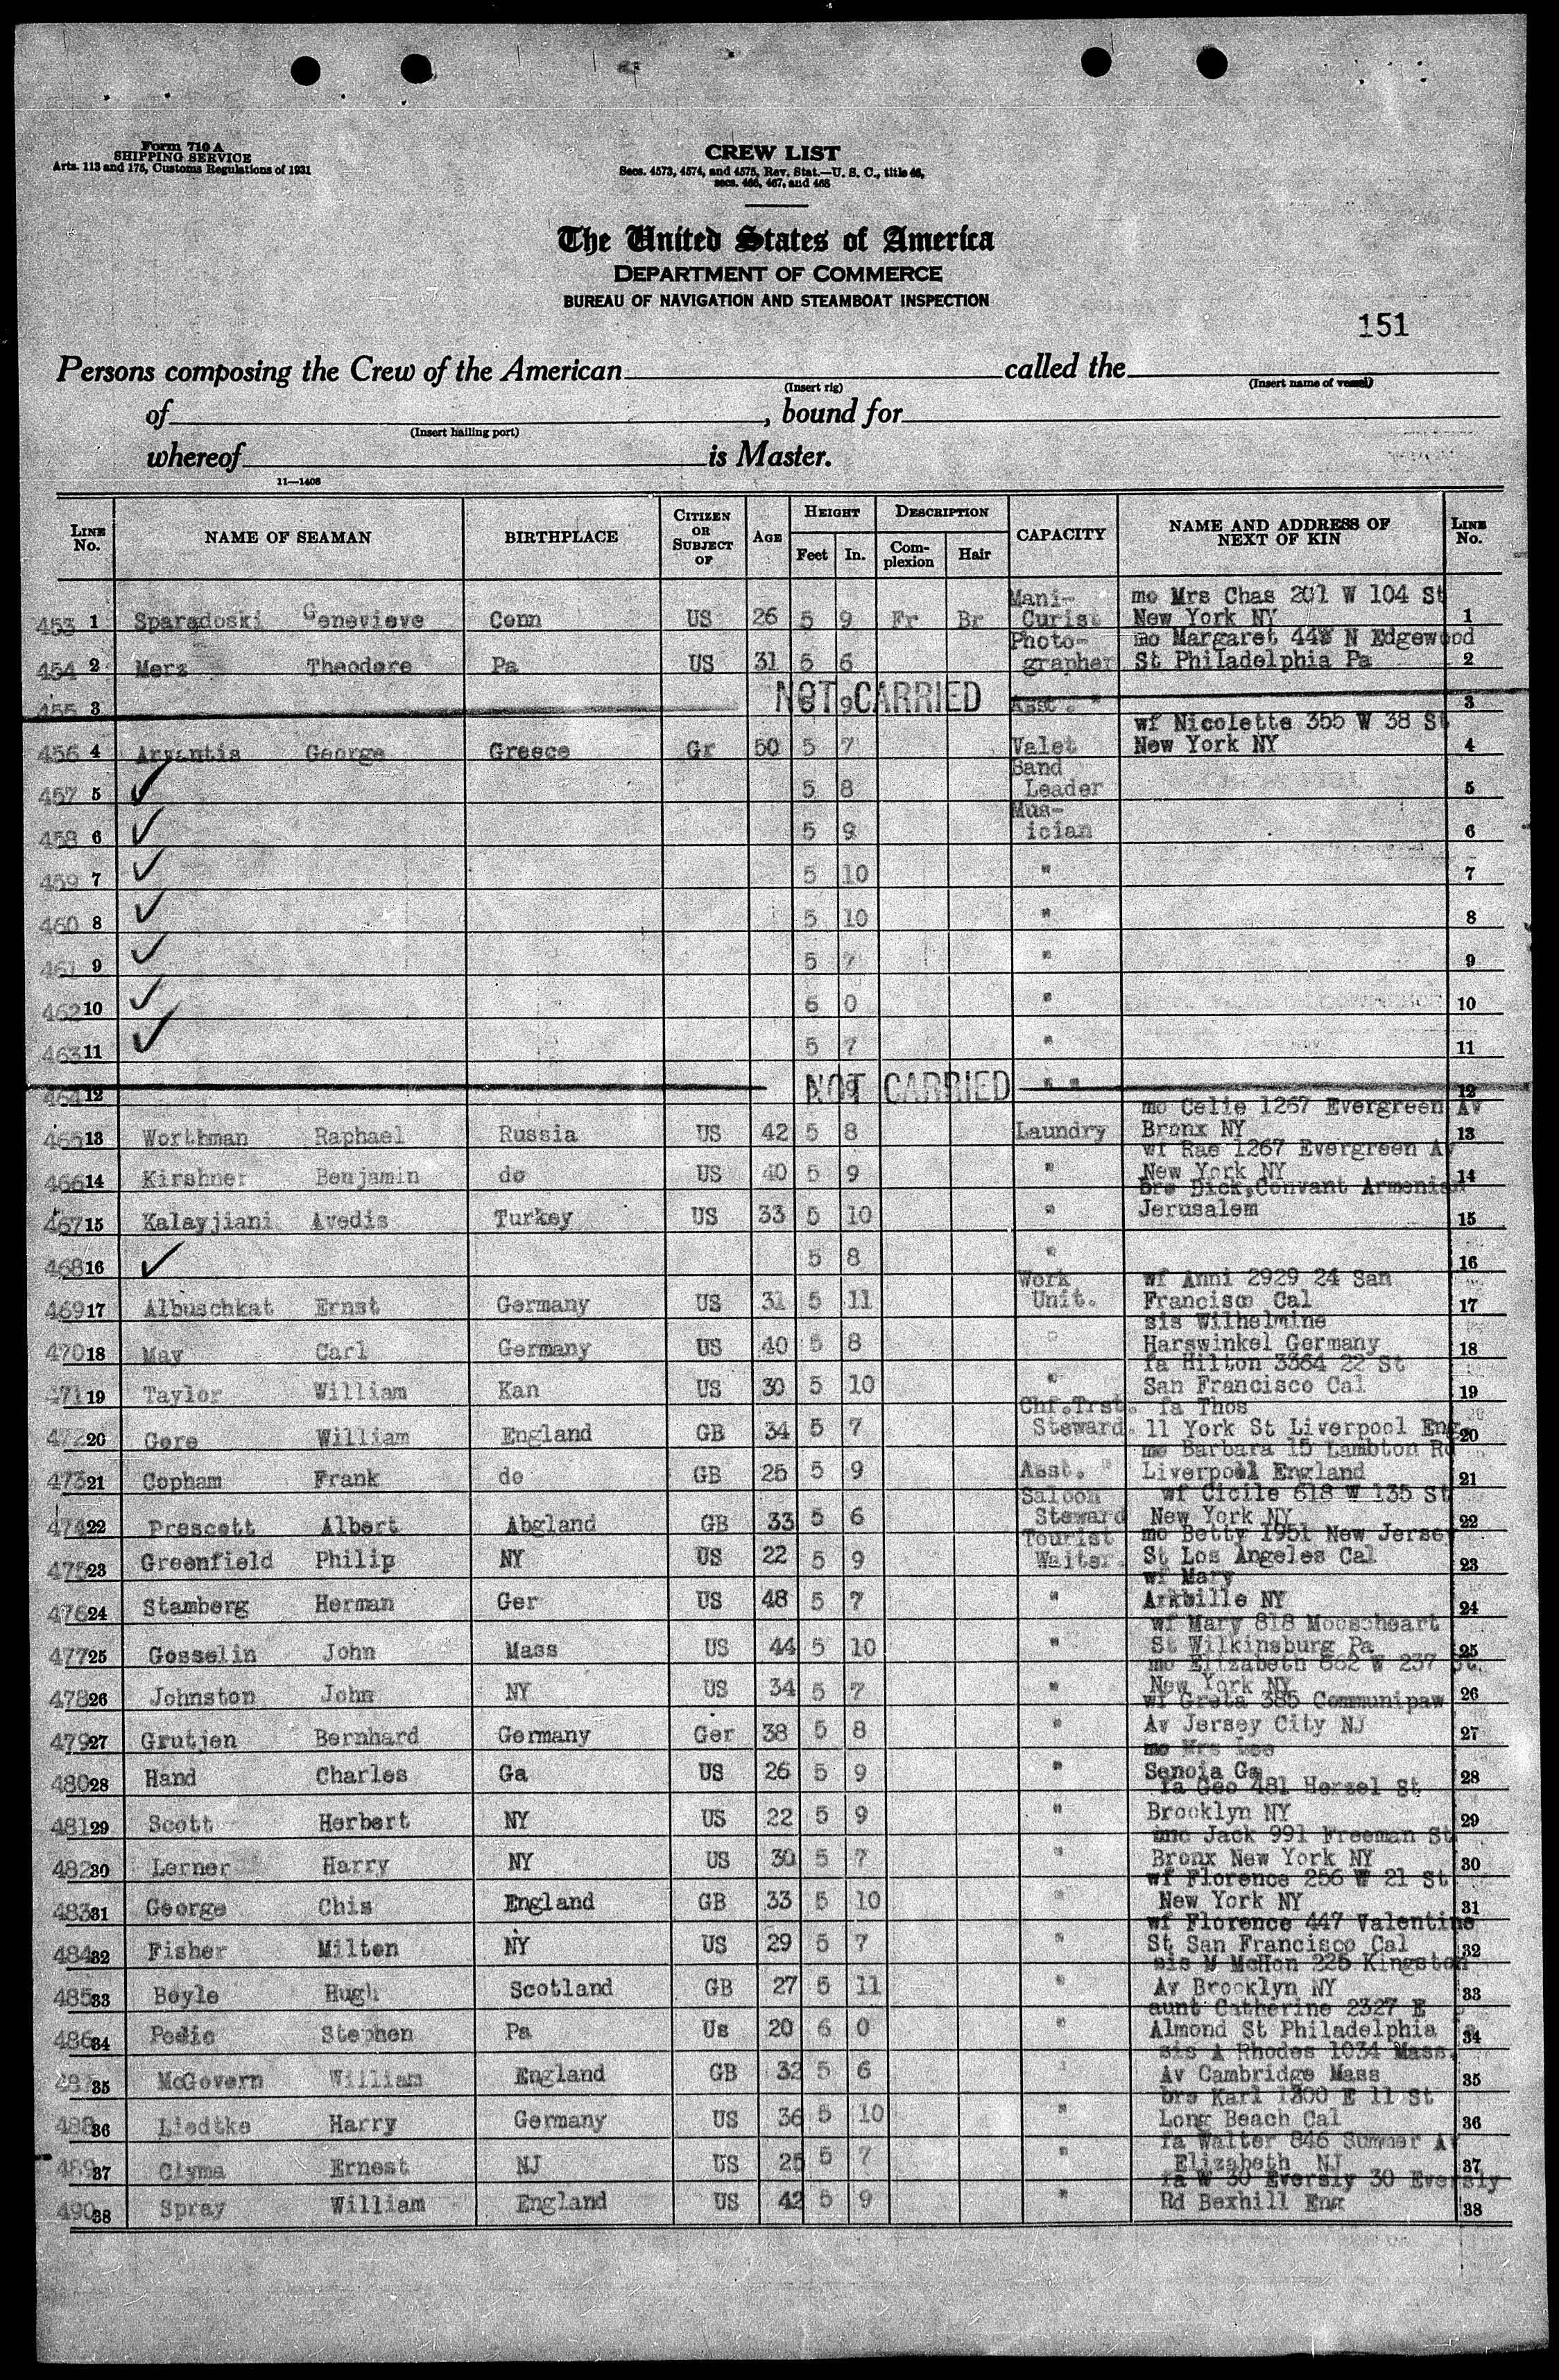 Form 710 A
SHIPPING SERVICE
Arts. 113 and 175, Customs Regulations of 1931
CREW LIST
Secs. 4573, 4574, and 4575, Rev. Stat.—U. S. C., title 46,
secs. 466, 467, and 468
The United States of America
DEPARTMENT OF COMMERCE
BUREAU OF NAVIGATION AND STEAMBOAT INSPECTION
151
Persons composing the Crew of the American called the
(Insert rig) (Insert name of vessel)
of , bound for
(Insert hailing port)
whereof is Master.
11—1408
LINE No. NAME OF SEAMAN BIRTHPLACE CITIZEN OR SUBJECT OF AGE HEIGHT Feet In. DESCRIPTION Complexion Hair CAPACITY NAME AND ADDRESS OF NEXT OF KIN LINE No.
Mani- mo Mrs Chas 201 W 104 St
453 1 Sparadoski Genevieve Conn US 26 5 9 Fr Br Curist New York NY 1
Photo- mo Margaret 448 N Edgewood
454 2 Merz Theodore Pa US 31 5 6 grapher St Philadelphia Pa 2
455 3 NOT CARRIED 9 Asst. " 3
wf Nicolette 355 W 38 St
456 4 George Greece Gr 50 5 7 Valet New York NY 4
Band
457 5 ✓ 5 8 Leader 5
Mus-
458 6 ✓ 5 9 ician 6
459 7 ✓ 5 10 " 7
460 8 ✓ 5 10 " 8
461 9 ✓ 5 7 " 9
462 10 ✓ 6 0 " 10
463 11 ✓ 5 7 " 11
464 12 NOT CARRIED " " 12
mo Celie 1267 Evergreen Av
465 13 Worthman Raphael Russia US 42 5 8 Laundry Bronx NY 13
wf Rae 1267 Evergreen Av
466 14 Kirshner Benjamin do US 40 5 9 " New York NY 14
bro Dick, Convant Armenian
467 15 Kalayjiani Avedis Turkey US 33 5 10 " Jerusalem 15
468 16 ✓ 5 8 " 16
Work wf Anni 2929 24 San
469 17 Albuschkat Ernst Germany US 31 5 11 Unit. Francisco Cal 17
sis Wilhelmine
470 18 May Carl Germany US 40 5 8 " Harswinkel Germany 18
fa Hilton 3364 22 St
471 19 Taylor William Kan US 30 5 10 " San Francisco Cal 19
Chf.Trst. fa Thos
472 20 Gore William England GB 34 5 7 Steward. 11 York St Liverpool Eng. 20
mo Barbara 15 Lambton Rd
473 21 Copham Frank do GB 25 5 9 Asst. " Liverpool England 21
Saloon wf Cicile 618 W 135 St
474 22 Prescott Albert Abgland GB 33 5 6 Steward New York NY 22
Tourist mo Betty 1951 New Jersey
475 23 Greenfield Philip NY US 22 5 9 Waiter. St Los Angeles Cal 23
wf Mary
476 24 Stamberg Herman Ger US 48 5 7 " Arkbille NY 24
wf Mary 818 Mooseheart
477 25 Gosselin John Mass US 44 5 10 " St Wilkinsburg Pa 25
mo Elizabeth 662 W 237 St.
478 26 Johnston John NY US 34 5 7 " New York NY 26
wf Greta 385 Communipaw
479 27 Grutjen Bernhard Germany Ger 38 5 8 " Av Jersey City NJ 27
mo Mrs Lee
480 28 Hand Charles Ga US 26 5 9 " Senoia Ga 28
fa Geo 481 Herzel St
481 29 Scott Herbert NY US 22 5 9 " Brooklyn NY 29
unc Jack 991 Freeman St
482 30 Lerner Harry NY US 30 5 7 " Bronx New York NY 30
wf Florence 256 W 21 St
483 31 George Chis England GB 33 5 10 " New York NY 31
wf Florence 447 Valentine
484 32 Fisher Milton NY US 29 5 7 " St San Francisco Cal 32
sis M McHon 225 Kingston
485 33 Boyle Hugh Scotland GB 27 5 11 " Av Brooklyn NY 33
aunt Catherine 2327 E
486 34 Pedic Stephen Pa Us 20 6 0 " Almond St Philadelphia 34
sis A Rhodes 1034 Mass.
487 35 McGovern William England GB 32 5 6 " Av Cambridge Mass 35
bro Karl 1200 E 11 St
488 36 Liedtke Harry Germany US 36 5 10 " Long Beach Cal 36
fa Walter 846 Summer Av
489 37 Clyma Ernest NJ US 25 5 7 " Elizabeth NJ 37
fa W 30 Eversly 30 Eversly
490 38 Spray William England US 42 5 9 " Rd Bexhill Eng 38